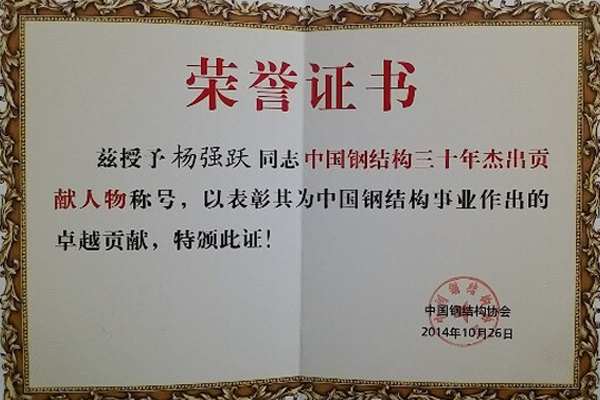 荣誉证书
兹授予杨强跃同志中国钢结构三十年杰出贡
献人物称号，以表彰其为中国钢结构事业作出的
卓越贡献，特颁此证！
中国钢结构协会
2014年10月26日